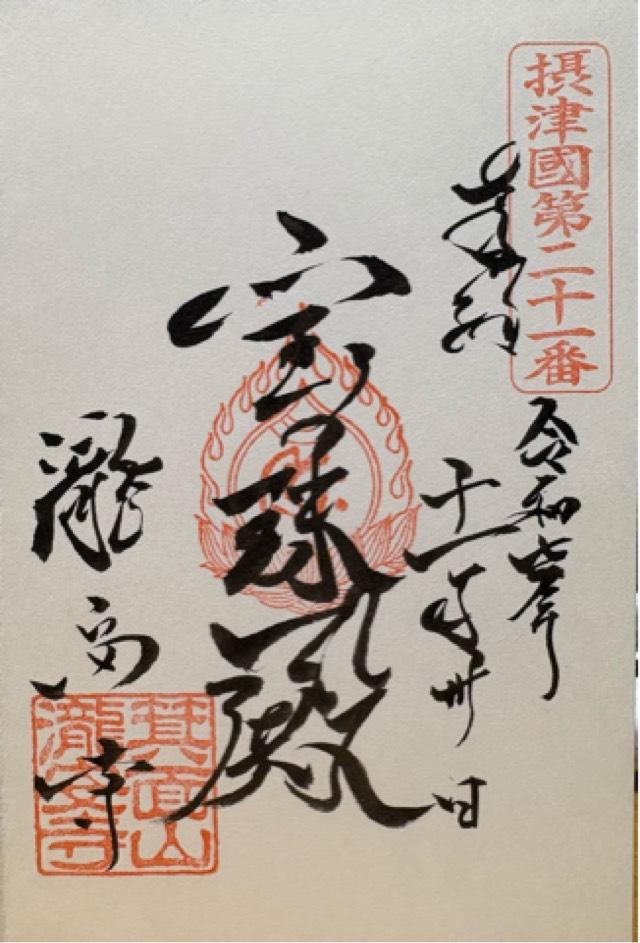 摂津國第二十一番
奉納
令和七年
十一月卅日
宝珠殿
瀧安寺
箕面山
瀧安寺